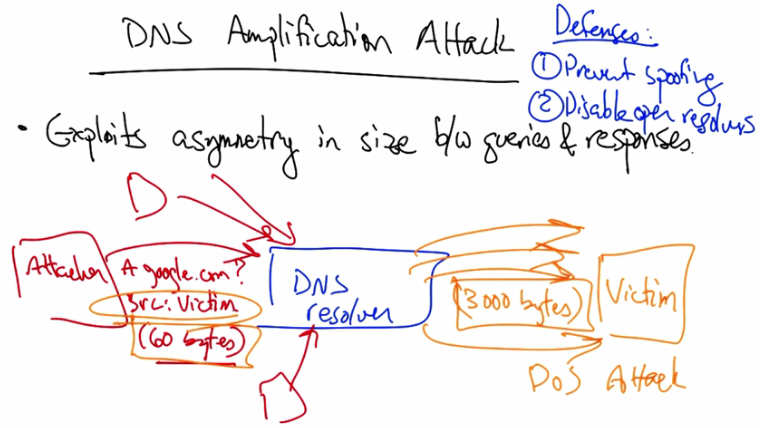 DNS Amplification Attack
Defenses:
① Prevent spoofing
② Disable open resolvers
• Exploits asymmetry in size b/w queries & responses.
Attacker
A google.com?
Src: Victim
(60 bytes)
DNS
resolver
(3000 bytes)
Victim
DoS Attack